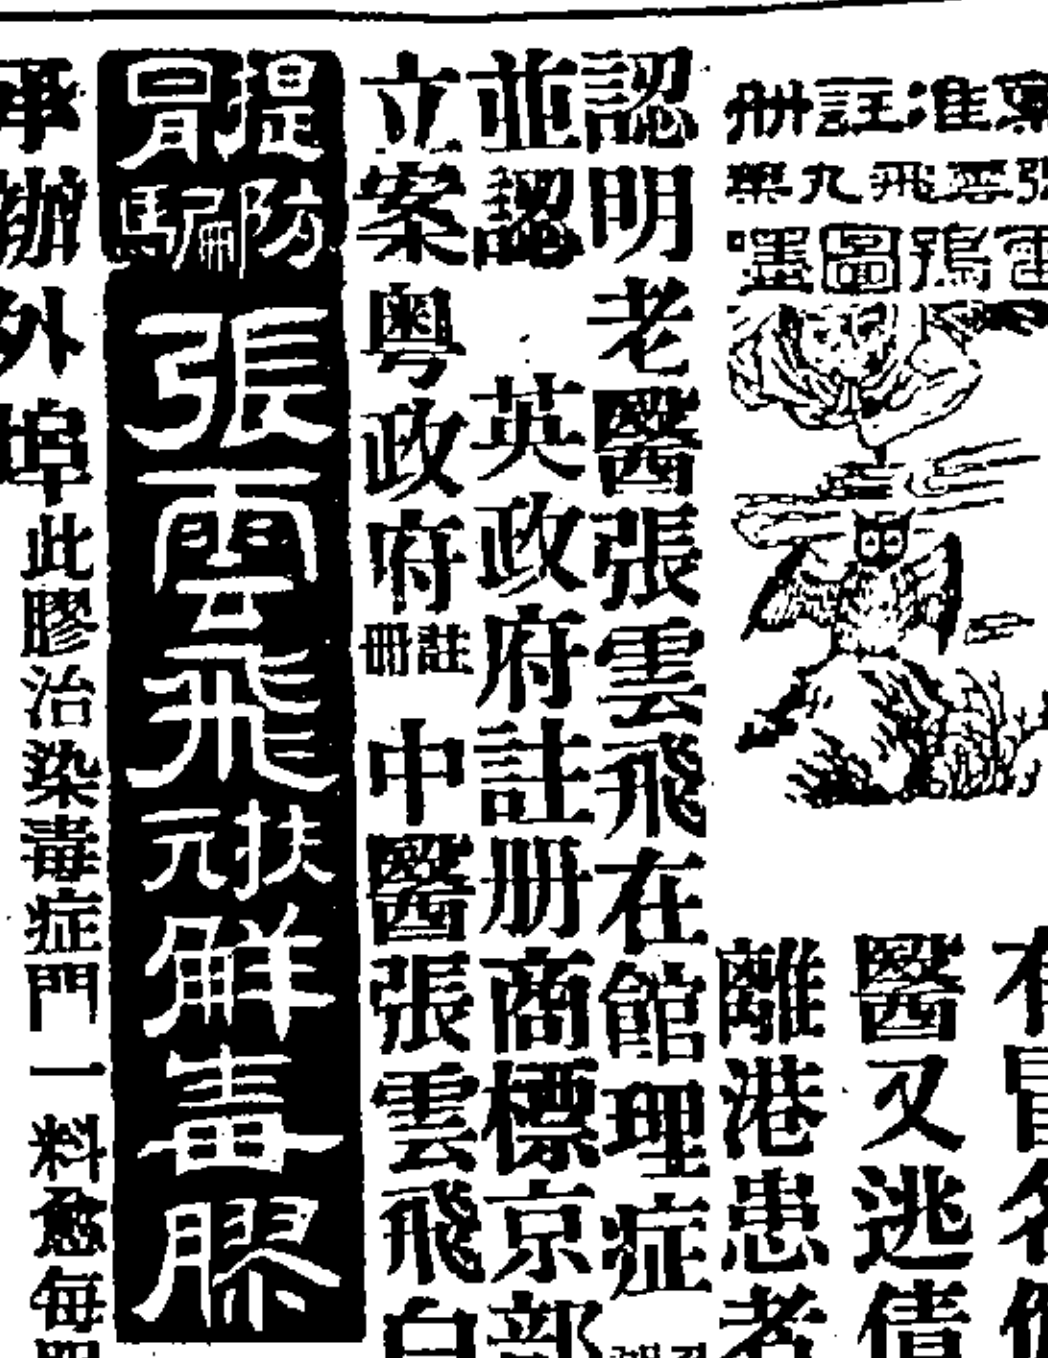 准註册
雲飛九藥
鴞圖墨
有冒名
醫又逃倩
離港患者
認明老醫張雲飛在館理症
並認 英政府註册商標京部
立案粵政府註冊 中醫張雲飛白
提防冒騙 張雲飛扶元鮮毒膠
承辦外埠 此膠治染毒症門一料愈每